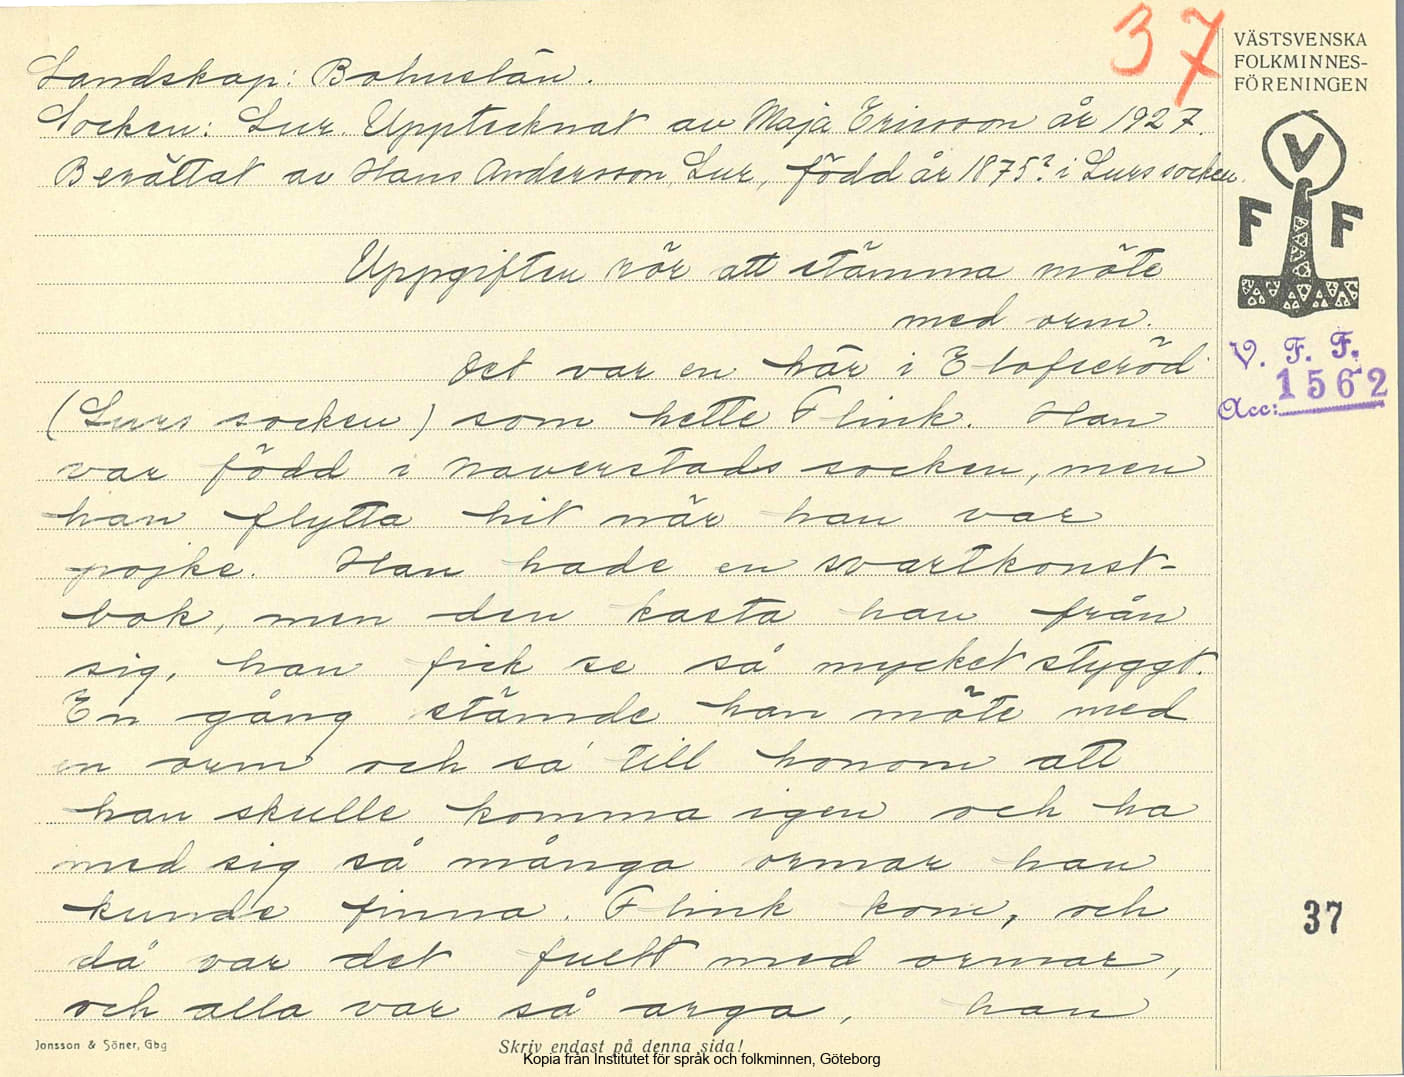 37
VÄSTSVENSKA
FOLKMINNES-
FÖRENINGEN
V
F F
V. F. F.
Acc: 1562
Landskap: Bohuslän.
Socken: Lur. Upptecknat av Maja Ericsson år 1927.
Berättat av Hans Andersson, Lur, född år 1875? i Lurs socken.
Uppgiften rör att stämma möte
med orm.
Det var en här i Elofseröd
(Lurs socken) som hette Flink. Han
var född i Naverstads socken, men
han flytta hit när han var
pojke. Han hade en svartkonst-
bok, men den kasta han från
sig, han fick se så mycket styggt.
En gång stämde han möte med
en orm och sa' till honom att
han skulle komma igen och ha
med sig så många ormar han
kunde finna. Flink kom, och
då var det fullt med ormar,
och alla var så arga, han
37
Jonsson & Söner, Gbg
Skriv endast på denna sida!
Kopia från Institutet för språk och folkminnen, Göteborg